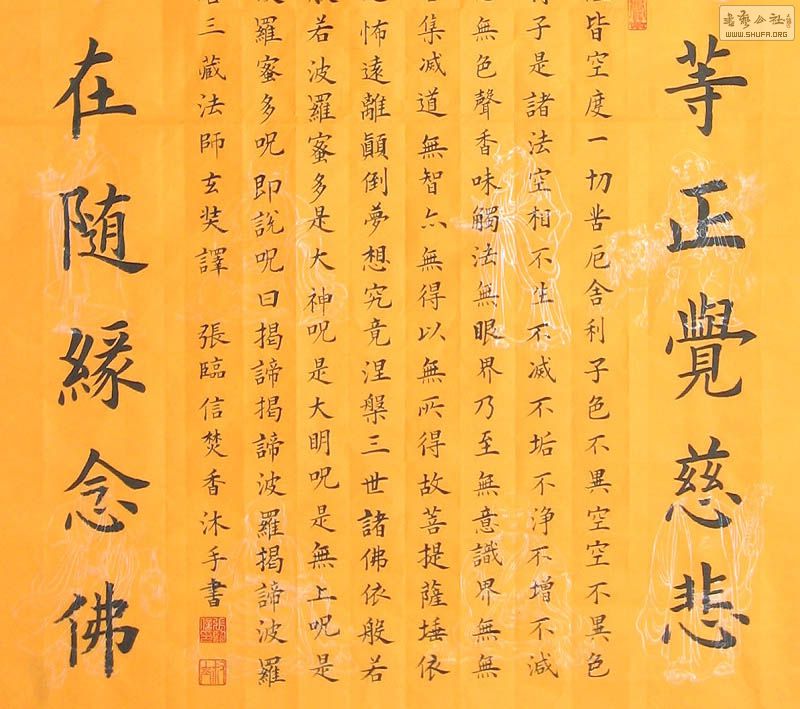 書藝公社
WWW.SHUFA.ORG
等正覺慈悲
皆空度一切苦厄舍利子色不異空空不異色
子是諸法空相不生不滅不垢不淨不增不減
無色聲香味觸法無眼界乃至無意識界無無
集滅道無智亦無得以無所得故菩提薩埵依
怖遠離顛倒夢想究竟涅槃三世諸佛依般若
若波羅蜜多是大神呪是大明呪是無上呪是
羅蜜多呪即說呪曰揭諦揭諦波羅揭諦波羅
三藏法師玄奘譯 張臨信焚香沐手書
在随緣念佛